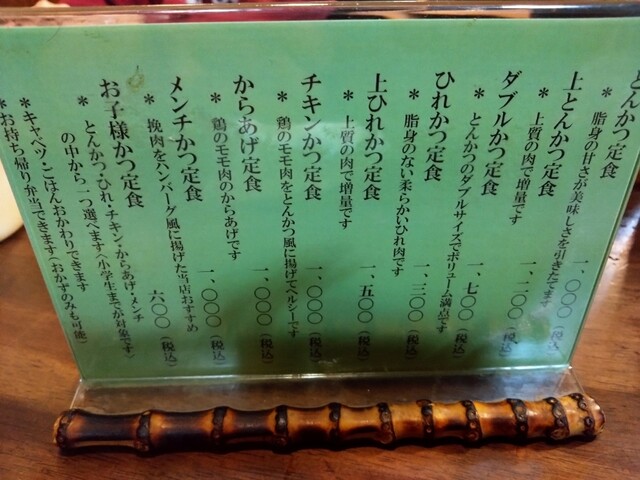 とんかつ定食
＊ 脂身の甘さが美味しさを引きたてます
一、〇〇〇（税込）
上とんかつ定食
＊ 上質の肉で増量です
一、二〇〇（税込）
ダブルかつ定食
＊ とんかつのダブルサイズでボリューム満点です
一、七〇〇（税込）
ひれかつ定食
＊ 脂身のない柔らかいひれ肉です
一、三〇〇（税込）
上ひれかつ定食
＊ 上質の肉で増量です
一、五〇〇（税込）
チキンかつ定食
＊ 鶏のモモ肉をとんかつ風に揚げてヘルシーです
一、〇〇〇（税込）
からあげ定食
＊ 鶏のモモ肉のからあげです
一、〇〇〇（税込）
メンチかつ定食
＊ 挽肉をハンバーグ風に揚げた当店おすすめ
一、〇〇〇（税込）
お子様かつ定食
六〇〇（税込）
＊ とんかつ・ひれ・チキン・からあげ・メンチ
の中から二つ選べます（小学生までが対象です）
＊ キャベツ・ごはんおかわりできます
＊ お持ち帰り弁当できます（おかずのみも可能）